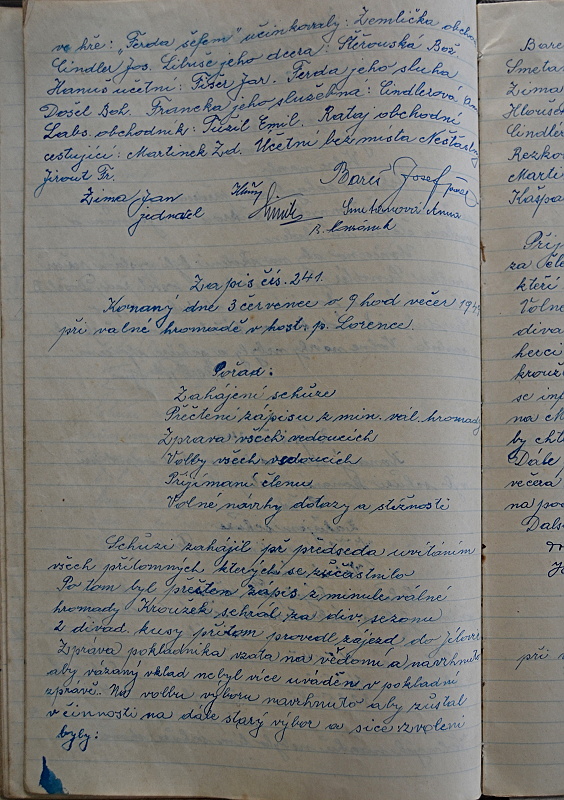 ve hře: „Ferda šéfem" účinkovaly: Žemlička obcho
Cindler Jos. Libuše jeho dcera: Štěrouská Bož.
Hanus účetní: Fišer Jar. Ferda jeho sluha
Došel Boh. Francka jeho služebná: Cindlerová
Labs. obchodník: Fúzil Emil. Rataj obchodní
cestující: Martinek Zd. Účetní bez místa Nešťastný
Jirout Fr.
Zima Jan
jednatel
Bareš Josef
Smetanová Anna
Zapis čís. 241.
Konaný dne 3 července o 9 hod večer 194
při valné hromadě v host. p. Lorence.
Pořad:
Zahájení schůze
Přečtení zápisu z min. vál. hromady
Zprava všech vedoucích
Volby všech vedoucích
Přijímaní členu
Volné návrhy dotazy a stížnosti
Schůzi zahájil př předseda uvítáním
všech přítomných kterých se zúčastnilo
Po tom byl přečten zápis z minulé válné
hromady Krouzek sehrál za div. sezonu
2 divad. kusy přitom provedl zájezd do Jílové
Zpráva pokladníka vzata na vědomí a navrhnuto
aby vázaný vklad nebyl více uváděn v pokladní
zprávě. Na volbu výboru navrhnuto aby zůstal
v činnosti na dále starý výbor a sice zvoleni
byly:
Bare
Smeta
Zima
Hlouše
Cindler
Rezko
Marti
Kašpa
Příp
za
kteří
Volne
diva
herci
krouž
se
na
by cht
Dále
večera
na po
Dals
při